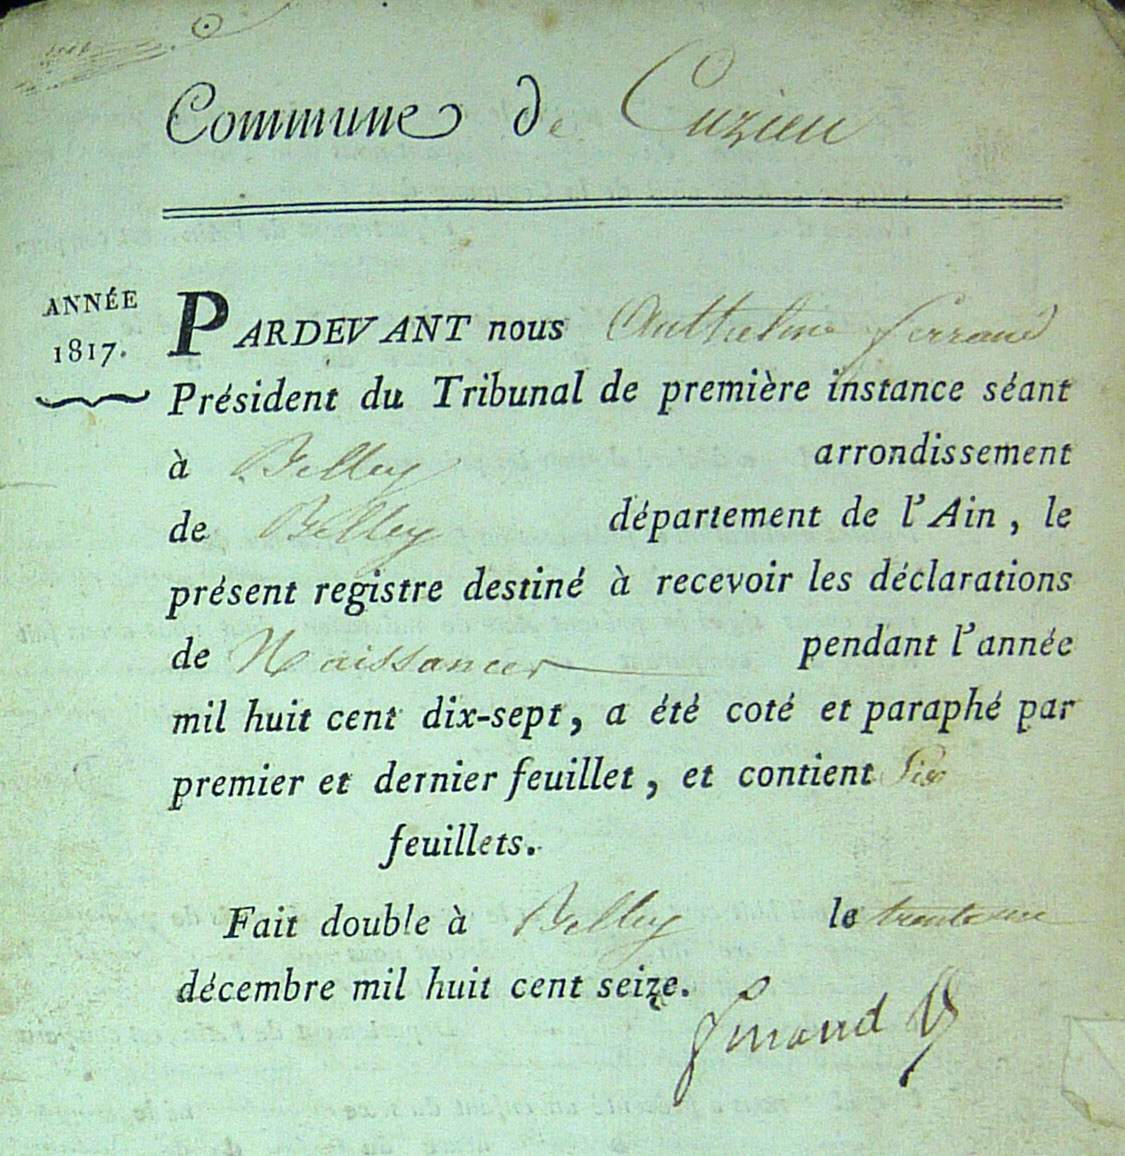 Commune de Cuzieu
ANNÉE
1817.
PARDEVANT nous Anthelme ferrand
Président du Tribunal de première instance séant
à Belley arrondissement
de Belley département de l'Ain, le
présent registre destiné à recevoir les déclarations
de Naissances pendant l'année
mil huit cent dix-sept, a été coté et paraphé par
premier et dernier feuillet, et contient Six
feuillets.
Fait double à Belley le trente un
décembre mil huit cent seize.
ferrand